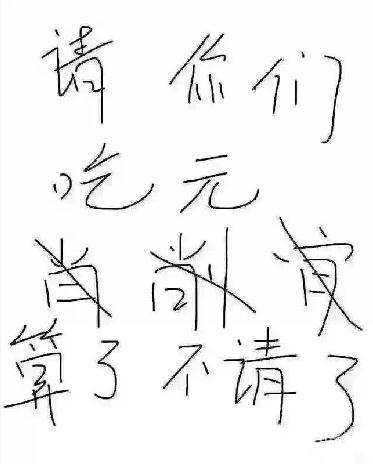 请你们
吃元
肖 削
算了不请了